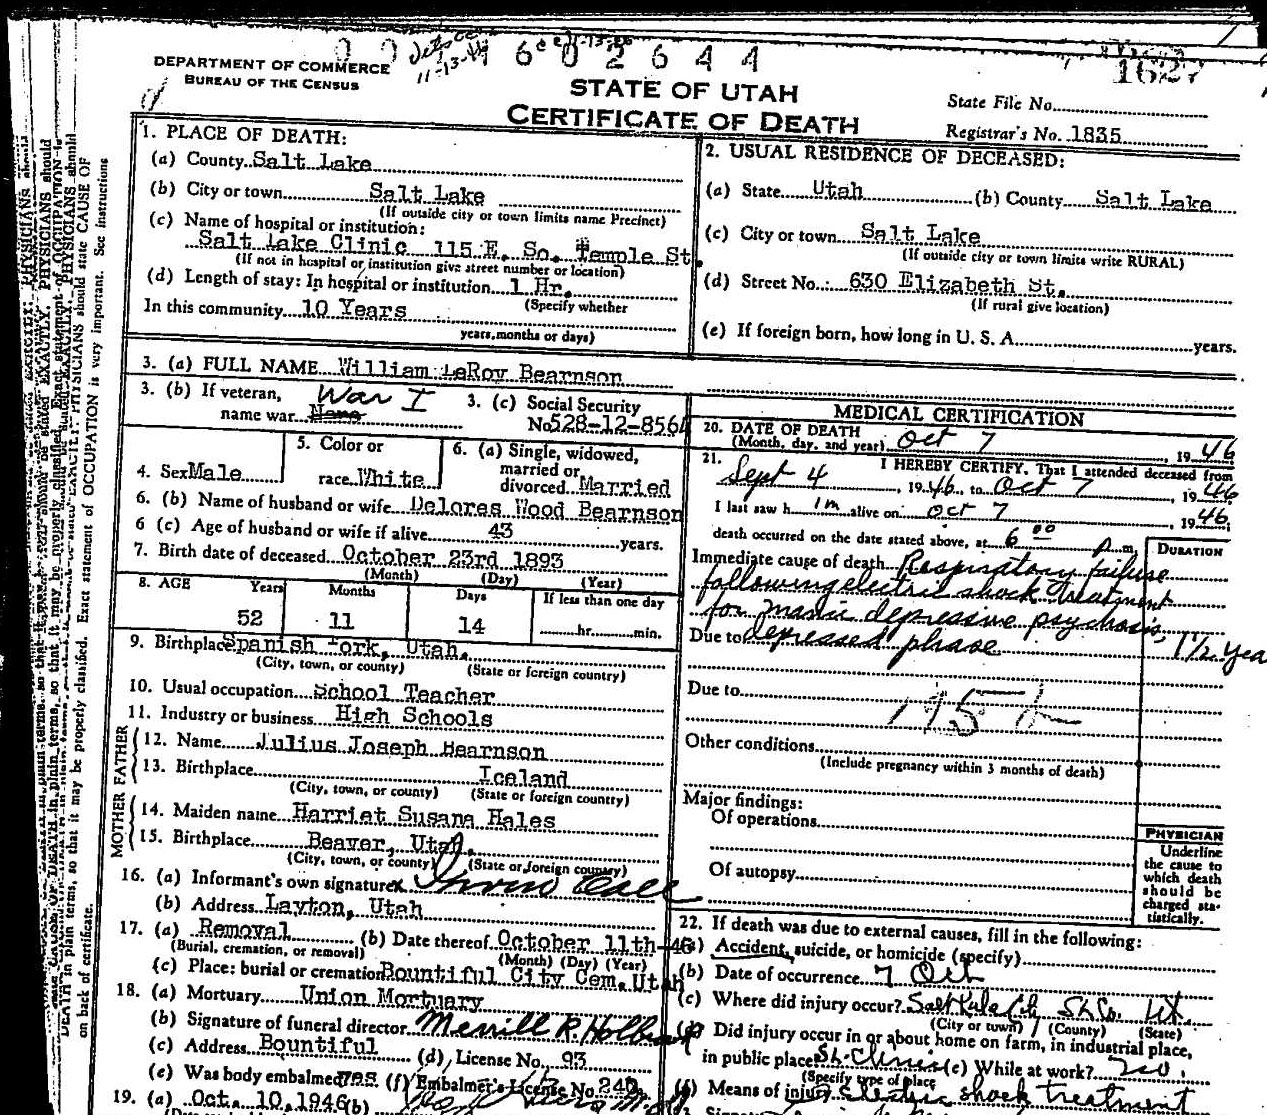 6 0 2 6 4 4
11-13-44
1627
DEPARTMENT OF COMMERCE
BUREAU OF THE CENSUS
STATE OF UTAH
CERTIFICATE OF DEATH
State File No.
Registrar's No. 1835
1. PLACE OF DEATH:
(a) County Salt Lake
(b) City or town Salt Lake
(If outside city or town limits name Precinct)
(c) Name of hospital or institution:
Salt Lake Clinic 115 E. So. Temple St.
(If not in hospital or institution give street number or location)
(d) Length of stay: In hospital or institution 1 Hr.
(Specify whether
In this community 10 Years
years, months or days)
2. USUAL RESIDENCE OF DECEASED:
(a) State Utah (b) County Salt Lake
(c) City or town Salt Lake
(If outside city or town limits write RURAL)
(d) Street No. 630 Elizabeth St.
(If rural give location)
(e) If foreign born, how long in U. S. A. years.
3. (a) FULL NAME William LeRoy Bearnson
3. (b) If veteran, name war War I None
3. (c) Social Security No. 528-12-8564
4. Sex Male
5. Color or race White
6. (a) Single, widowed, married or divorced Married
6. (b) Name of husband or wife Delores Wood Bearnson
6 (c) Age of husband or wife if alive 43 years.
7. Birth date of deceased October 23rd 1893
(Month) (Day) (Year)
8. AGE Years Months Days If less than one day
52 11 14 hr. min.
9. Birthplace Spanish Fork, Utah.
(City, town, or county) (State or foreign country)
10. Usual occupation School Teacher
11. Industry or business High Schools
FATHER
12. Name Julius Joseph Bearnson
13. Birthplace Iceland
(City, town, or county) (State or foreign country)
MOTHER
14. Maiden name Harriet Susana Hales
15. Birthplace Beaver, Utah.
(City, town, or county) (State or foreign country)
16. (a) Informant's own signature
(b) Address Layton, Utah
17. (a) Removal (b) Date thereof October 11th-46
(Burial, cremation, or removal) (Month) (Day) (Year)
(c) Place: burial or cremation Bountiful City Cem. Utah
18. (a) Mortuary Union Mortuary
(b) Signature of funeral director Merrill R. Holbrook
(c) Address Bountiful (d) License No. 93
(e) Was body embalmed yes (f) Embalmer's License No. 240
19. (a) Oct. 10, 1946 (b)
MEDICAL CERTIFICATION
20. DATE OF DEATH
(Month, day, and year) Oct 7, 1946
21. I HEREBY CERTIFY, That I attended deceased from
Sept 4, 1946, to Oct 7, 1946
I last saw h im alive on Oct 7, 1946
death occurred on the date stated above, at 6 00 p m.
DURATION
Immediate cause of death Respiratory failure
following electric shock treatment
for manic depressive psychosis,
Due to depressed phase 1 1/2 yea
Due to
Other conditions
(Include pregnancy within 3 months of death)
Major findings:
Of operations
Of autopsy
PHYSICIAN
Underline
the cause to
which death
should be
charged sta-
tistically.
22. If death was due to external causes, fill in the following:
(a) Accident, suicide, or homicide (specify)
(b) Date of occurrence 7 Oct
(c) Where did injury occur? Salt Lake City S.L.Co. Ut.
(City or town) (County) (State)
(d) Did injury occur in or about home on farm, in industrial place,
in public place S.L. Clinic (e) While at work? no.
(Specify type of place
(f) Means of injury Electric shock treatment